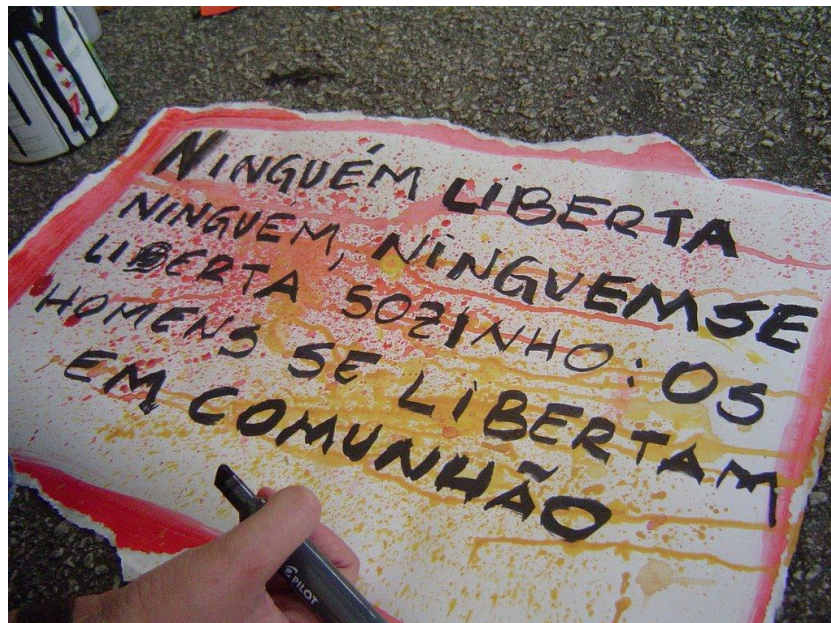 NINGUÉM LIBERTA
NINGUEM, NINGUEM SE
LIBERTA SOZINHO: OS
HOMENS SE LIBERTAM
EM COMUNHÃO
PILOT